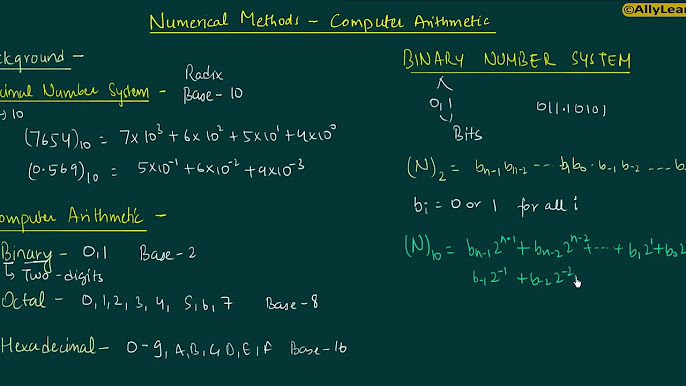 Numerical Methods - Computer Arithmetic
©AllyLear
ackground -
cimal Number System - Radix Base-10
10
(7654)₁₀ = 7x10³ + 6x10² + 5x10¹ + 4x10⁰
(0.569)₁₀ = 5x10⁻¹ + 6x10⁻² + 9x10⁻³
omputer Arithmetic -
Binary - 0,1 Base-2
↳ Two-digits
Octal - 0,1,2,3,4,5,6,7 Base-8
Hexadecimal - 0-9, A,B,C,D,E,F Base-16
BINARY NUMBER SYSTEM
0,1 011.10101
Bits
(N)₂ = bₙ₋₁bₙ₋₂ ---- b₁b₀.b₋₁b₋₂ ---- b
bᵢ = 0 or 1 for all i
(N)₁₀ = bₙ₋₁2ⁿ⁻¹ + bₙ₋₂2ⁿ⁻² + ---- + b₁2¹ + b₀2
b₋₁2⁻¹ + b₋₂2⁻²